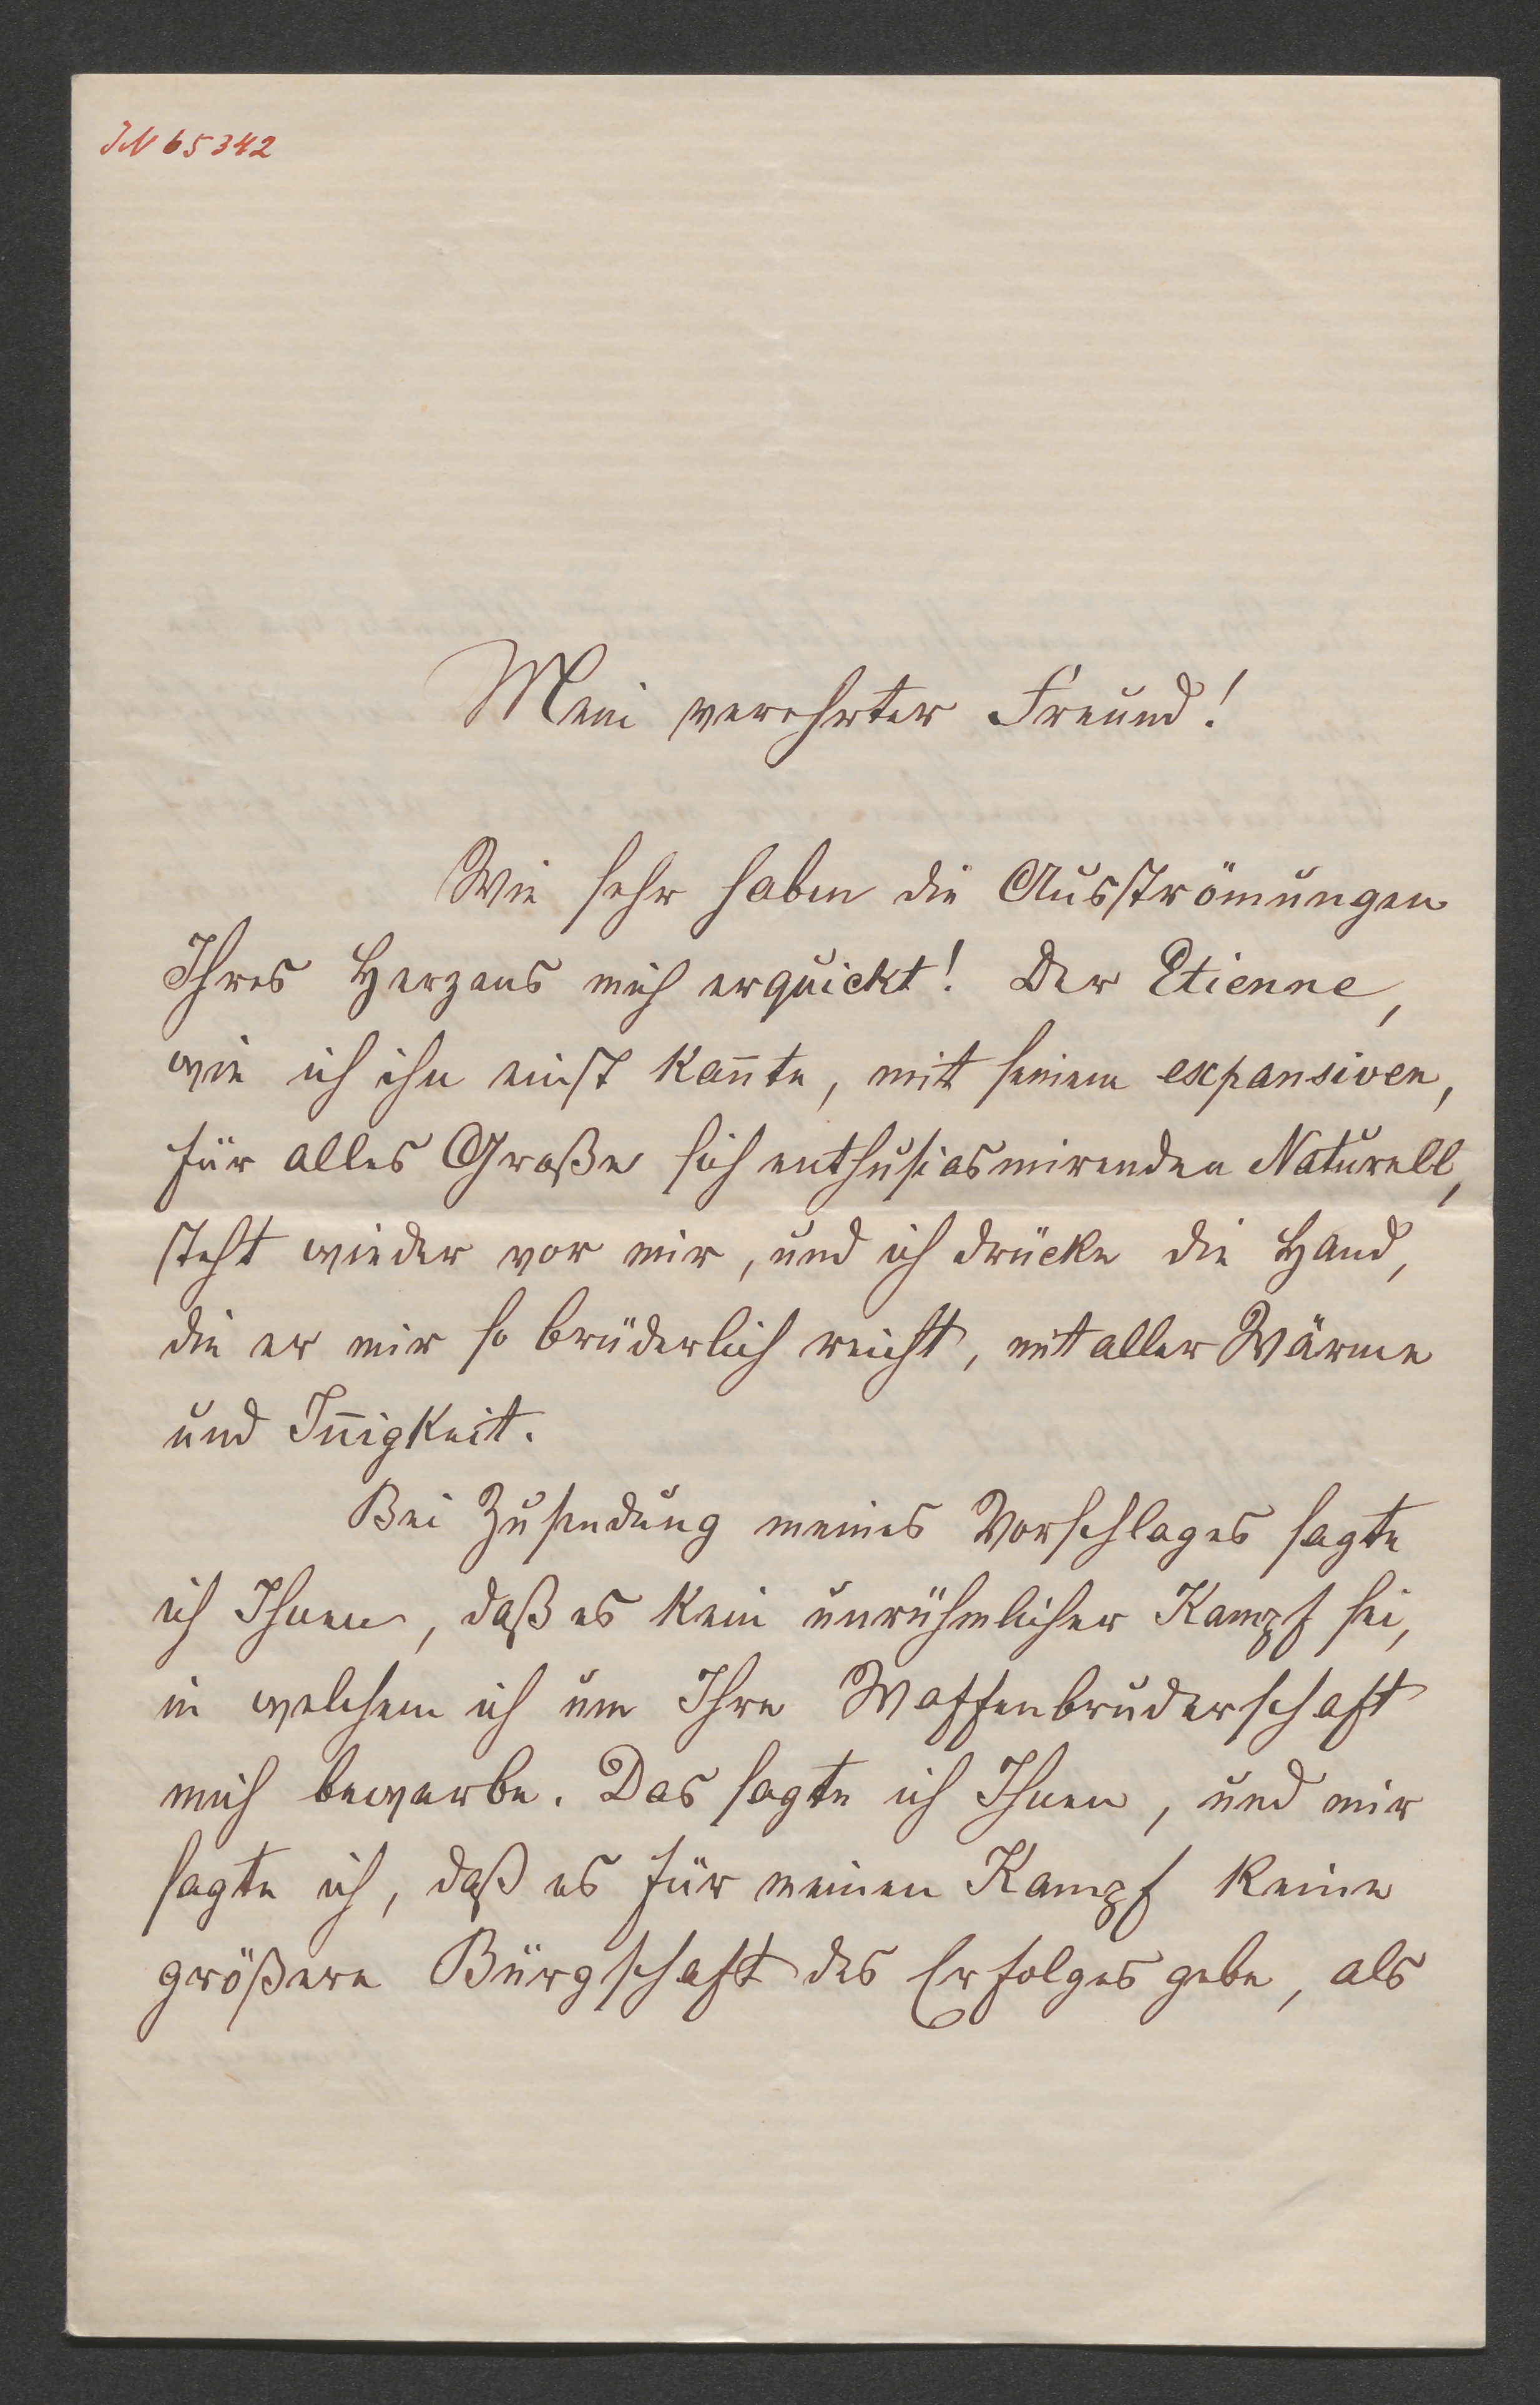 IN 65342
Mein verehrter Freund!
Wie sehr haben die Ausströmungen
Ihres Herzens mich erquickt! Der Etienne,
wie ich ihn einst kan̄te, mit seinem expansiven,
für alles Große sich enthusiasmirenden Naturell,
steht wieder vor mir, und ich drücke die Hand,
die er mir so brüderlich reicht, mit aller Wärme
und In̄igkeit.
Bei Zusendung meines Vorschlages sagte
ich Ihnen, daß es kein unrühmlicher Kampf sei,
in welchem ich um Ihre Waffenbruderschaft
mich bewerbe. Das sagte ich Ihnen, und mir
sagte ich, daß es für meinen Kampf keine
größere Bürgschaft des Erfolges gebe, als